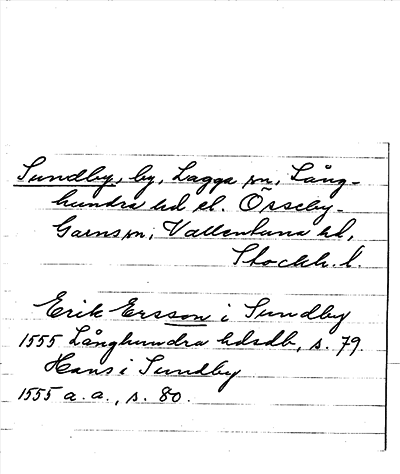 Sundby, by, Lagga sn, Lång-
hundra hd el. Össeby-
Garns sn, Vallentuna hd,
Stockh. l.
Erik Ersson i Sundby
1555 Långhundra hdsdb, s. 79.
Hans i Sundby
1555 a. a., s. 80.